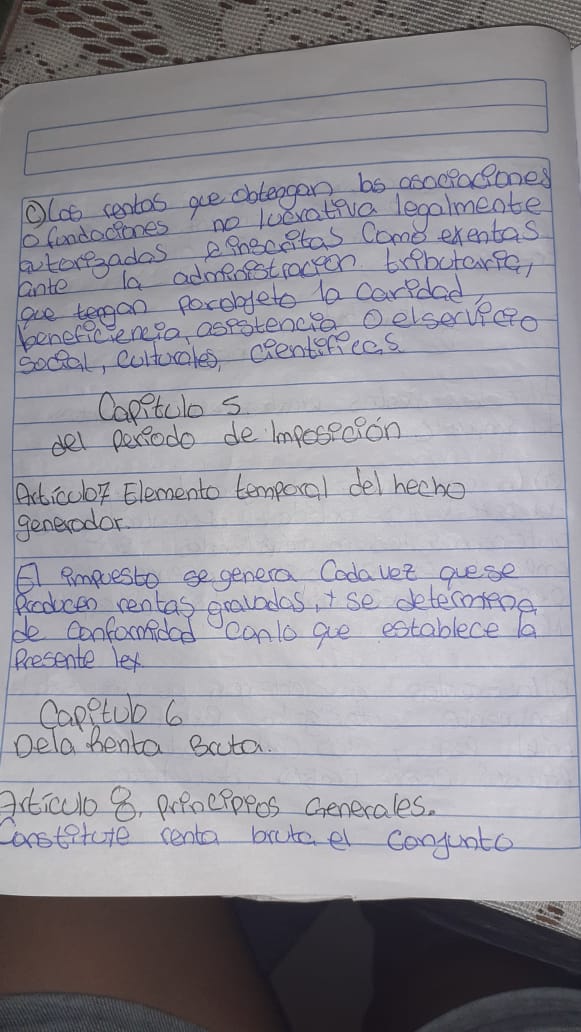 c) Las rentas que obtengan las asociaciones
o fundaciones no lucrativa legalmente
autorizadas e inscritas como exentas
ante la administracion tributaria,
que tengan por objeto la caridad,
beneficiencia, asistencia o el servicio
social, culturales, cientificas
Capitulo 5
del periodo de imposición
Artículo 7 Elemento temporal del hecho
generador.
El impuesto se genera Cada vez que se
Producen rentas gravadas, y se determina
de conformidad con lo que establece la
Presente ley
Capitulo 6
De la Renta Bruta.
Artículo 8. principios Generales.
Constituye renta bruta el conjunto